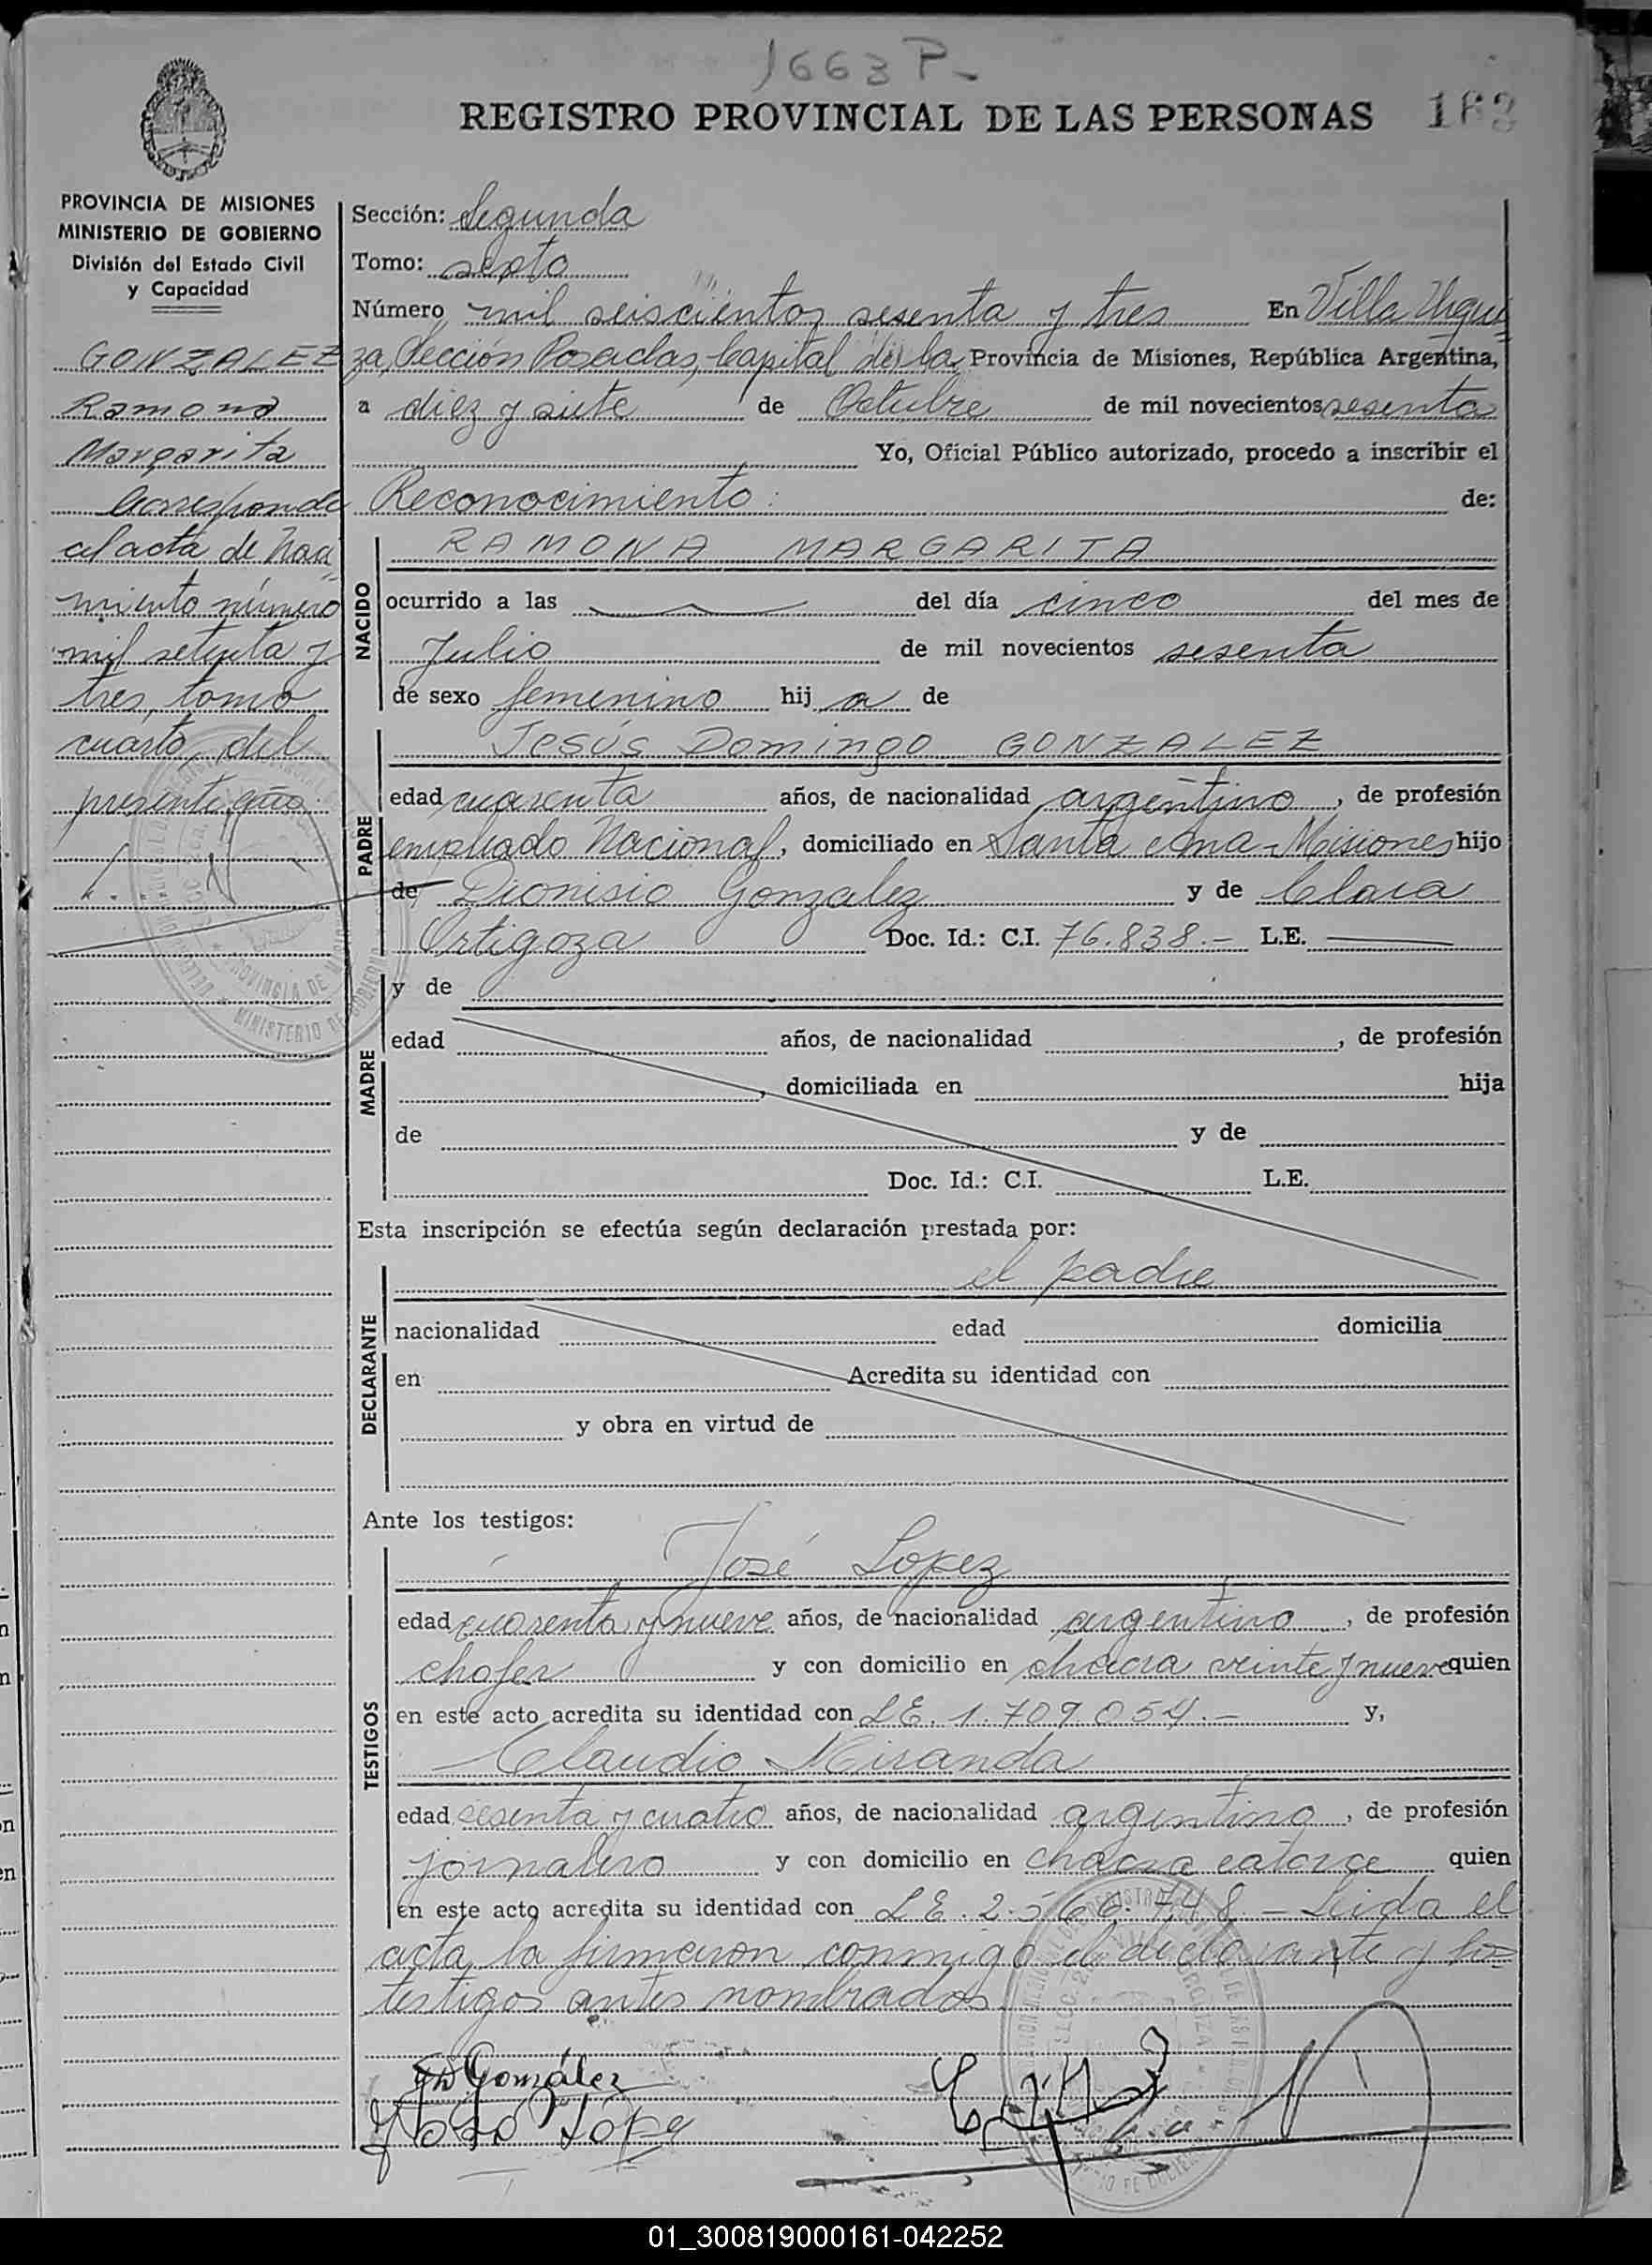 1663 P-
REGISTRO PROVINCIAL DE LAS PERSONAS 163
PROVINCIA DE MISIONES
MINISTERIO DE GOBIERNO
División del Estado Civil
y Capacidad
GONZALEZ
Ramona
Margarita
Corresponde
al acta de Naci=
miento número
mil setenta y
tres, tomo
cuarto, del
presente año.
Sección: Segunda
Tomo: septo
Número mil seiscientos sesenta y tres En Villa Urqui=
za, Sección Posadas, Capital de la Provincia de Misiones, República Argentina,
a diez y siete de Octubre de mil novecientos sesenta
Yo, Oficial Público autorizado, procedo a inscribir el
Reconocimiento: de:
NACIDO
RAMONA MARGARITA
ocurrido a las del día cinco del mes de
Julio de mil novecientos sesenta
de sexo femenino hij a de
PADRE
Jesús Domingo GONZALEZ
edad cuarenta años, de nacionalidad argentino, de profesión
empleado Nacional, domiciliado en Santa Ana - Misiones hijo
de Dionisio Gonzalez y de Clara
Ortigoza Doc. Id.: C.I. 76.838.- L.E.
MADRE
y de
edad años, de nacionalidad , de profesión
, domiciliada en hija
de y de
Doc. Id.: C.I. L.E.
Esta inscripción se efectúa según declaración prestada por:
el padre
DECLARANTE
nacionalidad edad domicilia
en Acredita su identidad con
y obra en virtud de
Ante los testigos:
TESTIGOS
José Lopez
edad cuarenta y nueve años, de nacionalidad argentino, de profesión
chofer y con domicilio en chacra veinte y nueve quien
en este acto acredita su identidad con LE. 1.709.054.- y,
Claudio Miranda
edad sesenta y cuatro años, de nacionalidad argentino, de profesión
jornalero y con domicilio en chacra catorce quien
en este acto acredita su identidad con LE. 2.566.748.- Leida el
acta, la firmaron conmigo el declarante y los
testigos antes nombrados.
González
José López
01_300819000161-042252